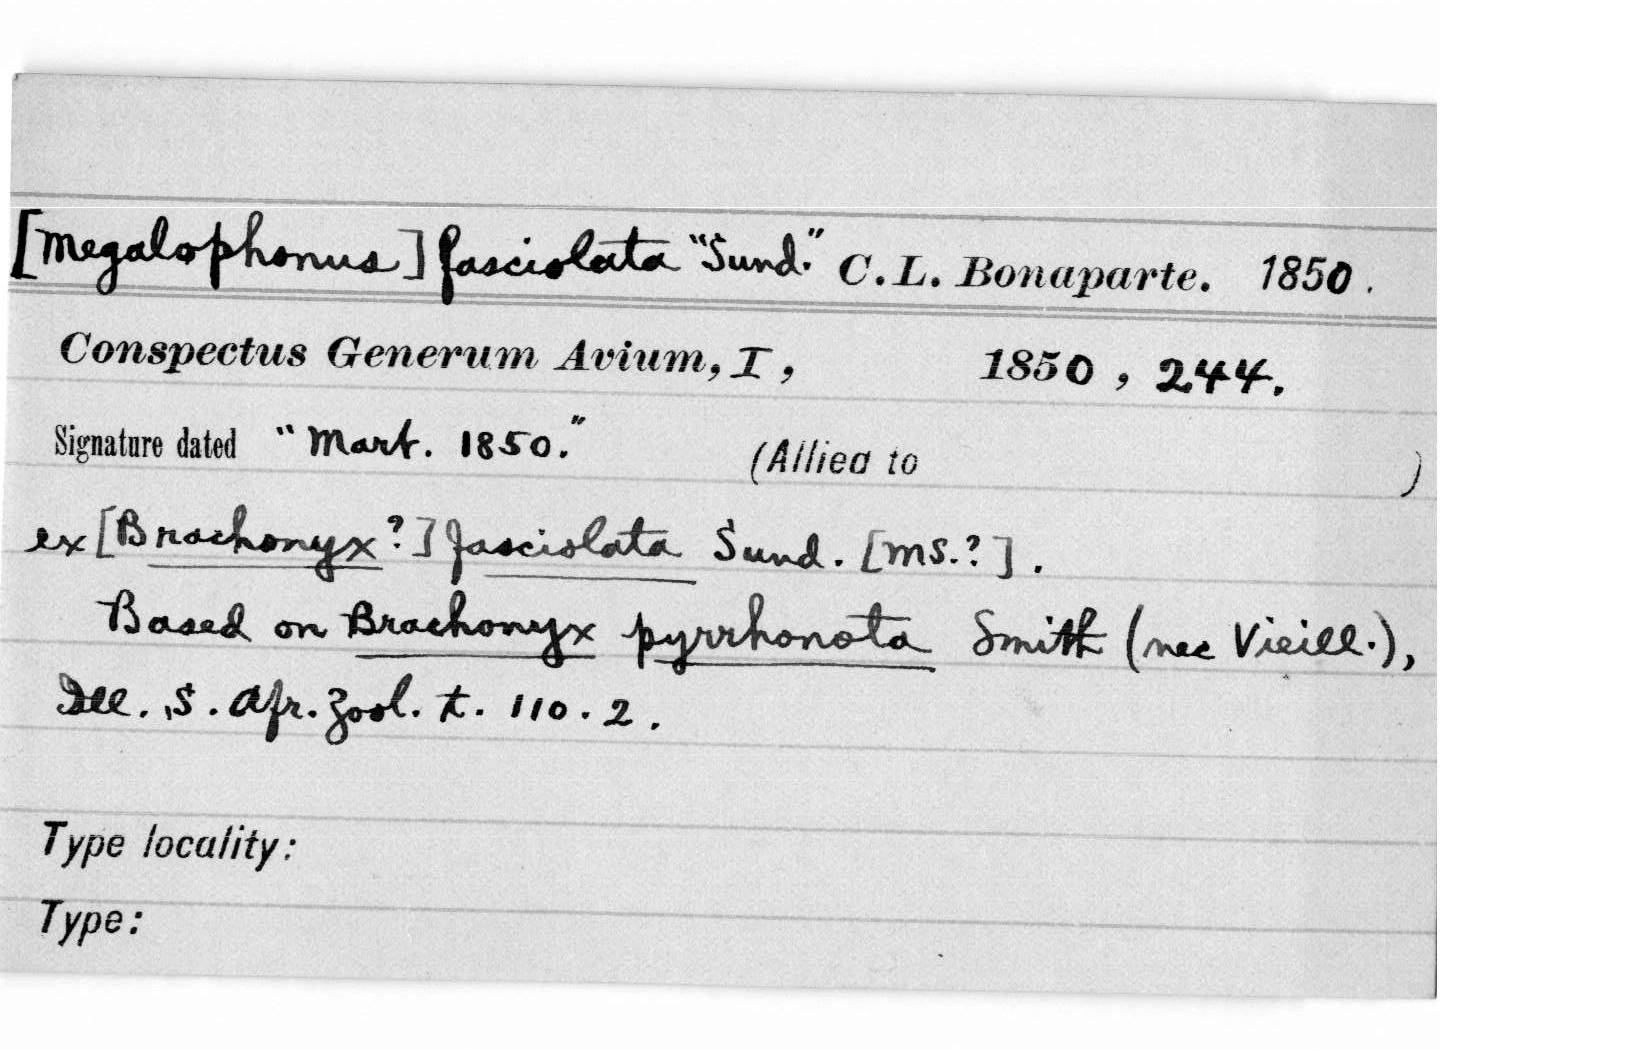 [Megalophonus] fasciolata "Sund." C. L. Bonaparte. 1850.
Conspectus Generum Avium, I, 1850, 244.
Signature dated "Mart. 1850." (Allied to )
ex [Brachonyx?] fasciolata Sund. [MS.?].
Based on Brachonyx pyrrhonota Smith (nec Vieill.),
Ill. S. Afr. Zool. t. 110. 2.
Type locality:
Type: